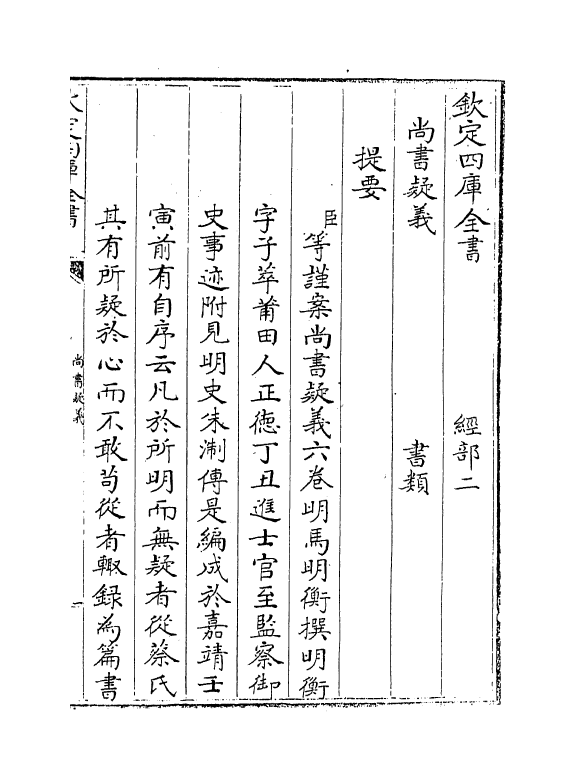 欽定四庫全書　經部二
尚書疑義　書類
提要
臣等謹案尚書疑義六卷明馬明衡撰明衡
字子萃莆田人正德丁丑進士官至監察御
史事迹附見明史朱淛傳是編成於嘉靖壬
寅前有自序云凡於所明而無疑者從蔡氏
其有所疑於心而不敢苟從者輙録為篇書
欽定四庫全書
尚書疑義
一